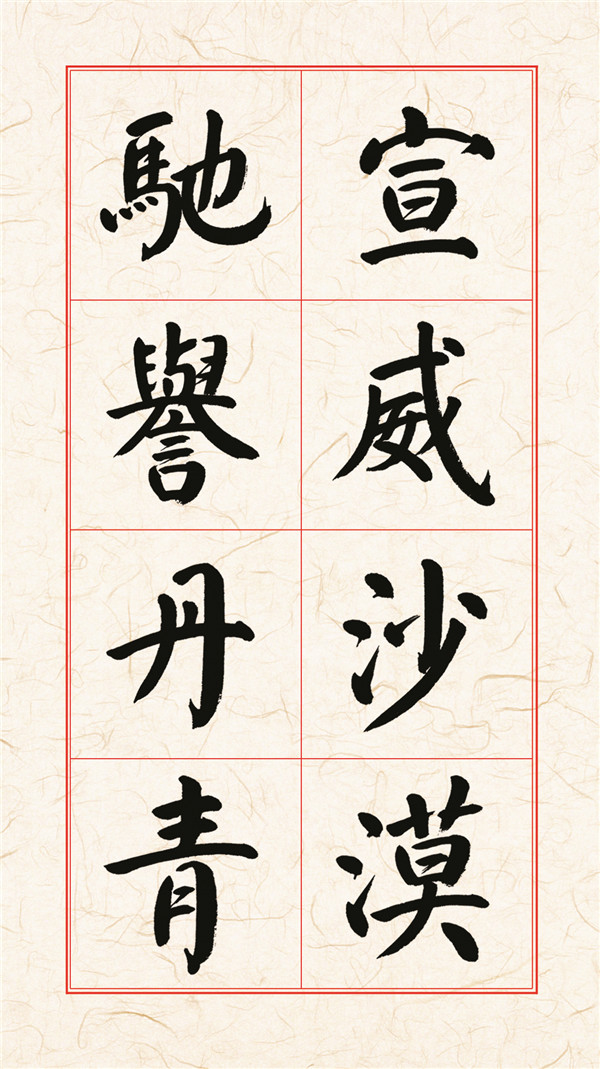 宣威沙漠
馳譽丹青